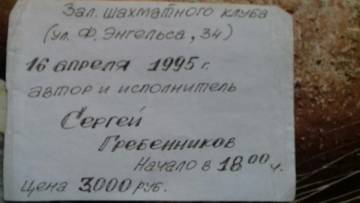 Зал. шахматного клуба
(ул. Ф. Энгельса, 34)
16 апреля 1995 г.
автор и исполнитель
Сергей
Гребенников
Начало в 18 00 ч.
Цена 3000 руб.